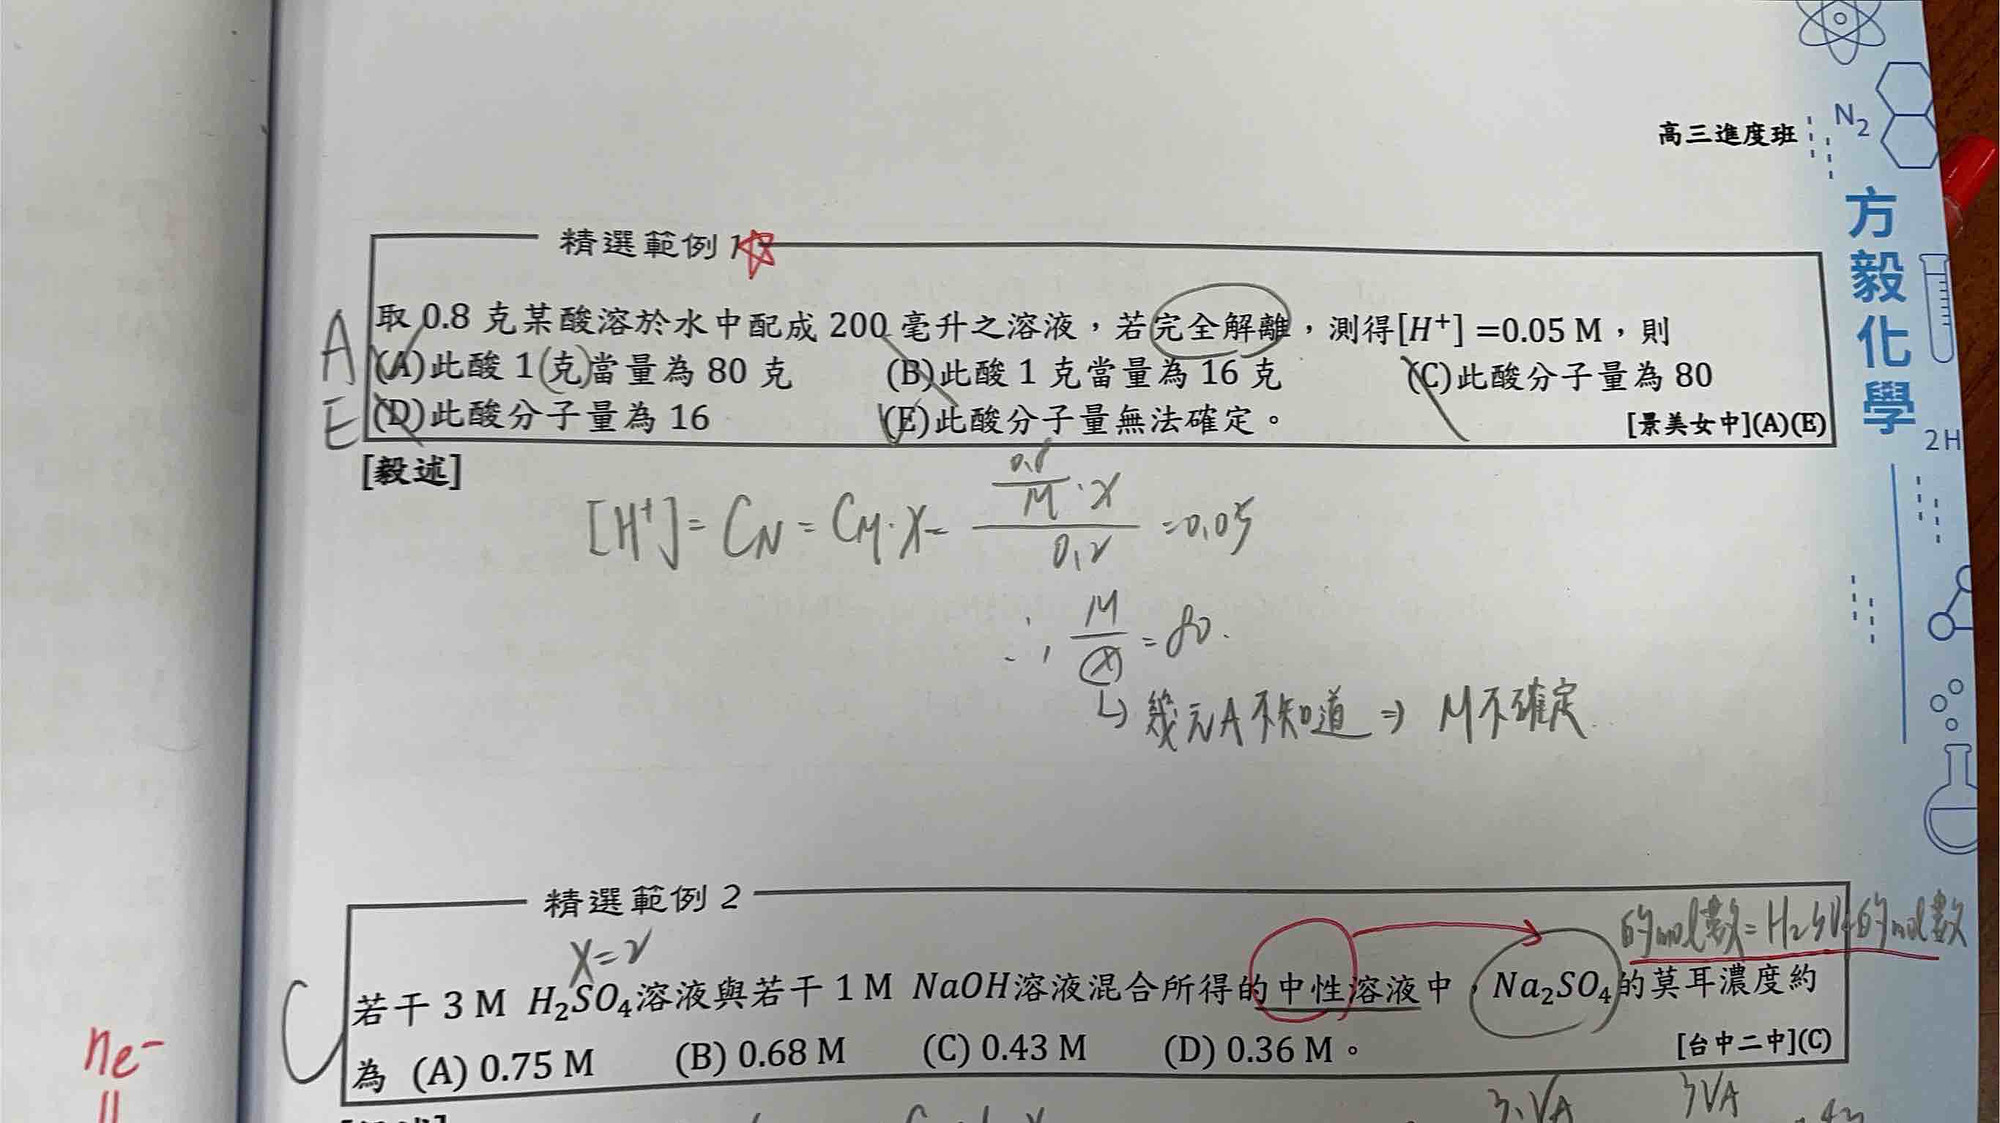 高三進度班
N₂
方毅化學
2H
精選範例 1
取 0.8 克某酸溶於水中配成 200 毫升之溶液，若完全解離，測得[H⁺] =0.05 M，則
(A)此酸 1 克當量為 80 克 (B)此酸 1 克當量為 16 克 (C)此酸分子量為 80
(D)此酸分子量為 16 (E)此酸分子量無法確定。 [景美女中](A)(E)
A
E
[毅述]
[H⁺] = C_N = C_M·x = (0.8/M · x)/0.2 = 0.05
∴ M/x = 80.
↳ 幾元A不知道 ⇒ M不確定
精選範例 2
的mol數=H₂SO₄的mol數
x=2
C
若干 3 M H₂SO₄溶液與若干 1 M NaOH溶液混合所得的中性溶液中，Na₂SO₄的莫耳濃度約
為 (A) 0.75 M (B) 0.68 M (C) 0.43 M (D) 0.36 M。 [台中二中](C)
ne⁻
3·VA 3VA